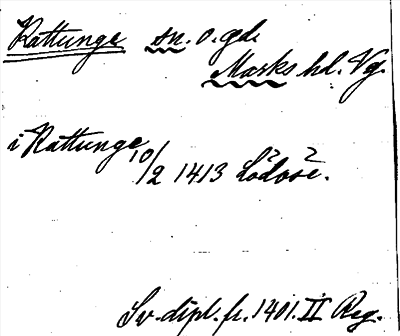 Kattunge sn. o. gd.
Marks hd. Vg.
i Kattunge 10/2 1413 Lödose.
Sv. dipl. fr. 1401. II Reg.